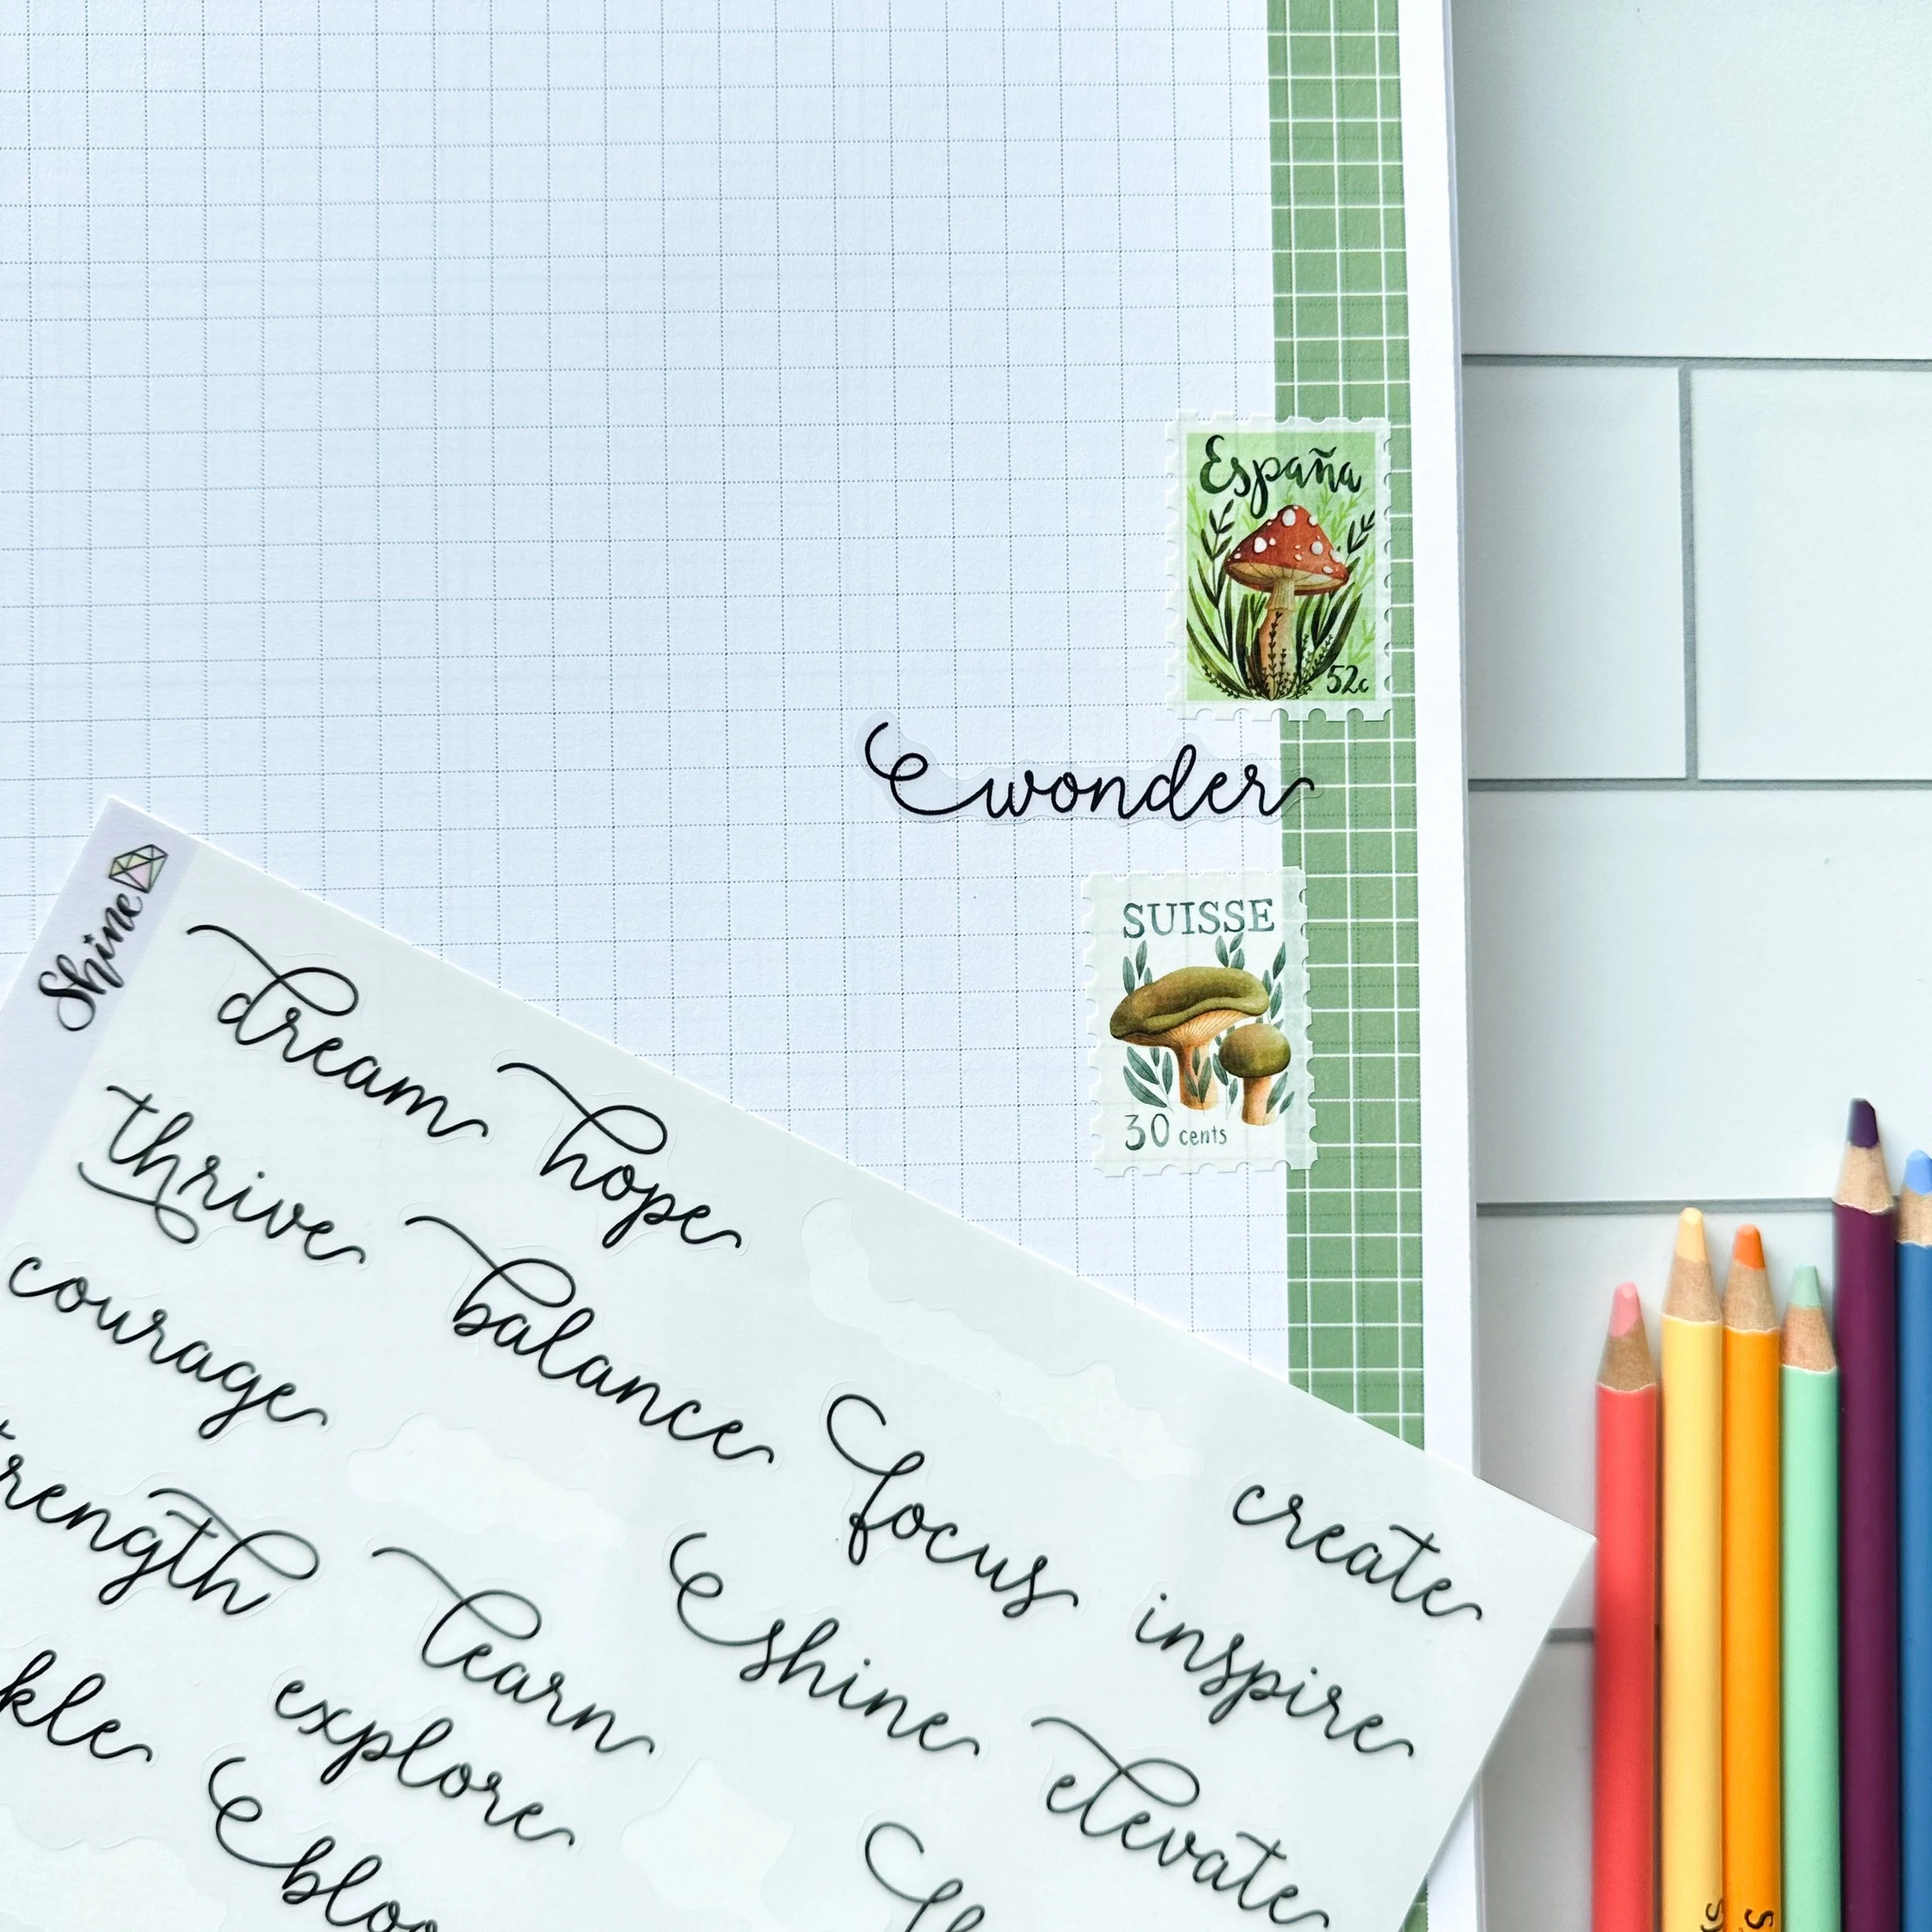 España
52c
wonder
SUISSE
30 cents
Shine
dream
hope
thrive
balance
courage
focus
create
trength
learn
shine
inspire
kle
explore
elevate
bloo